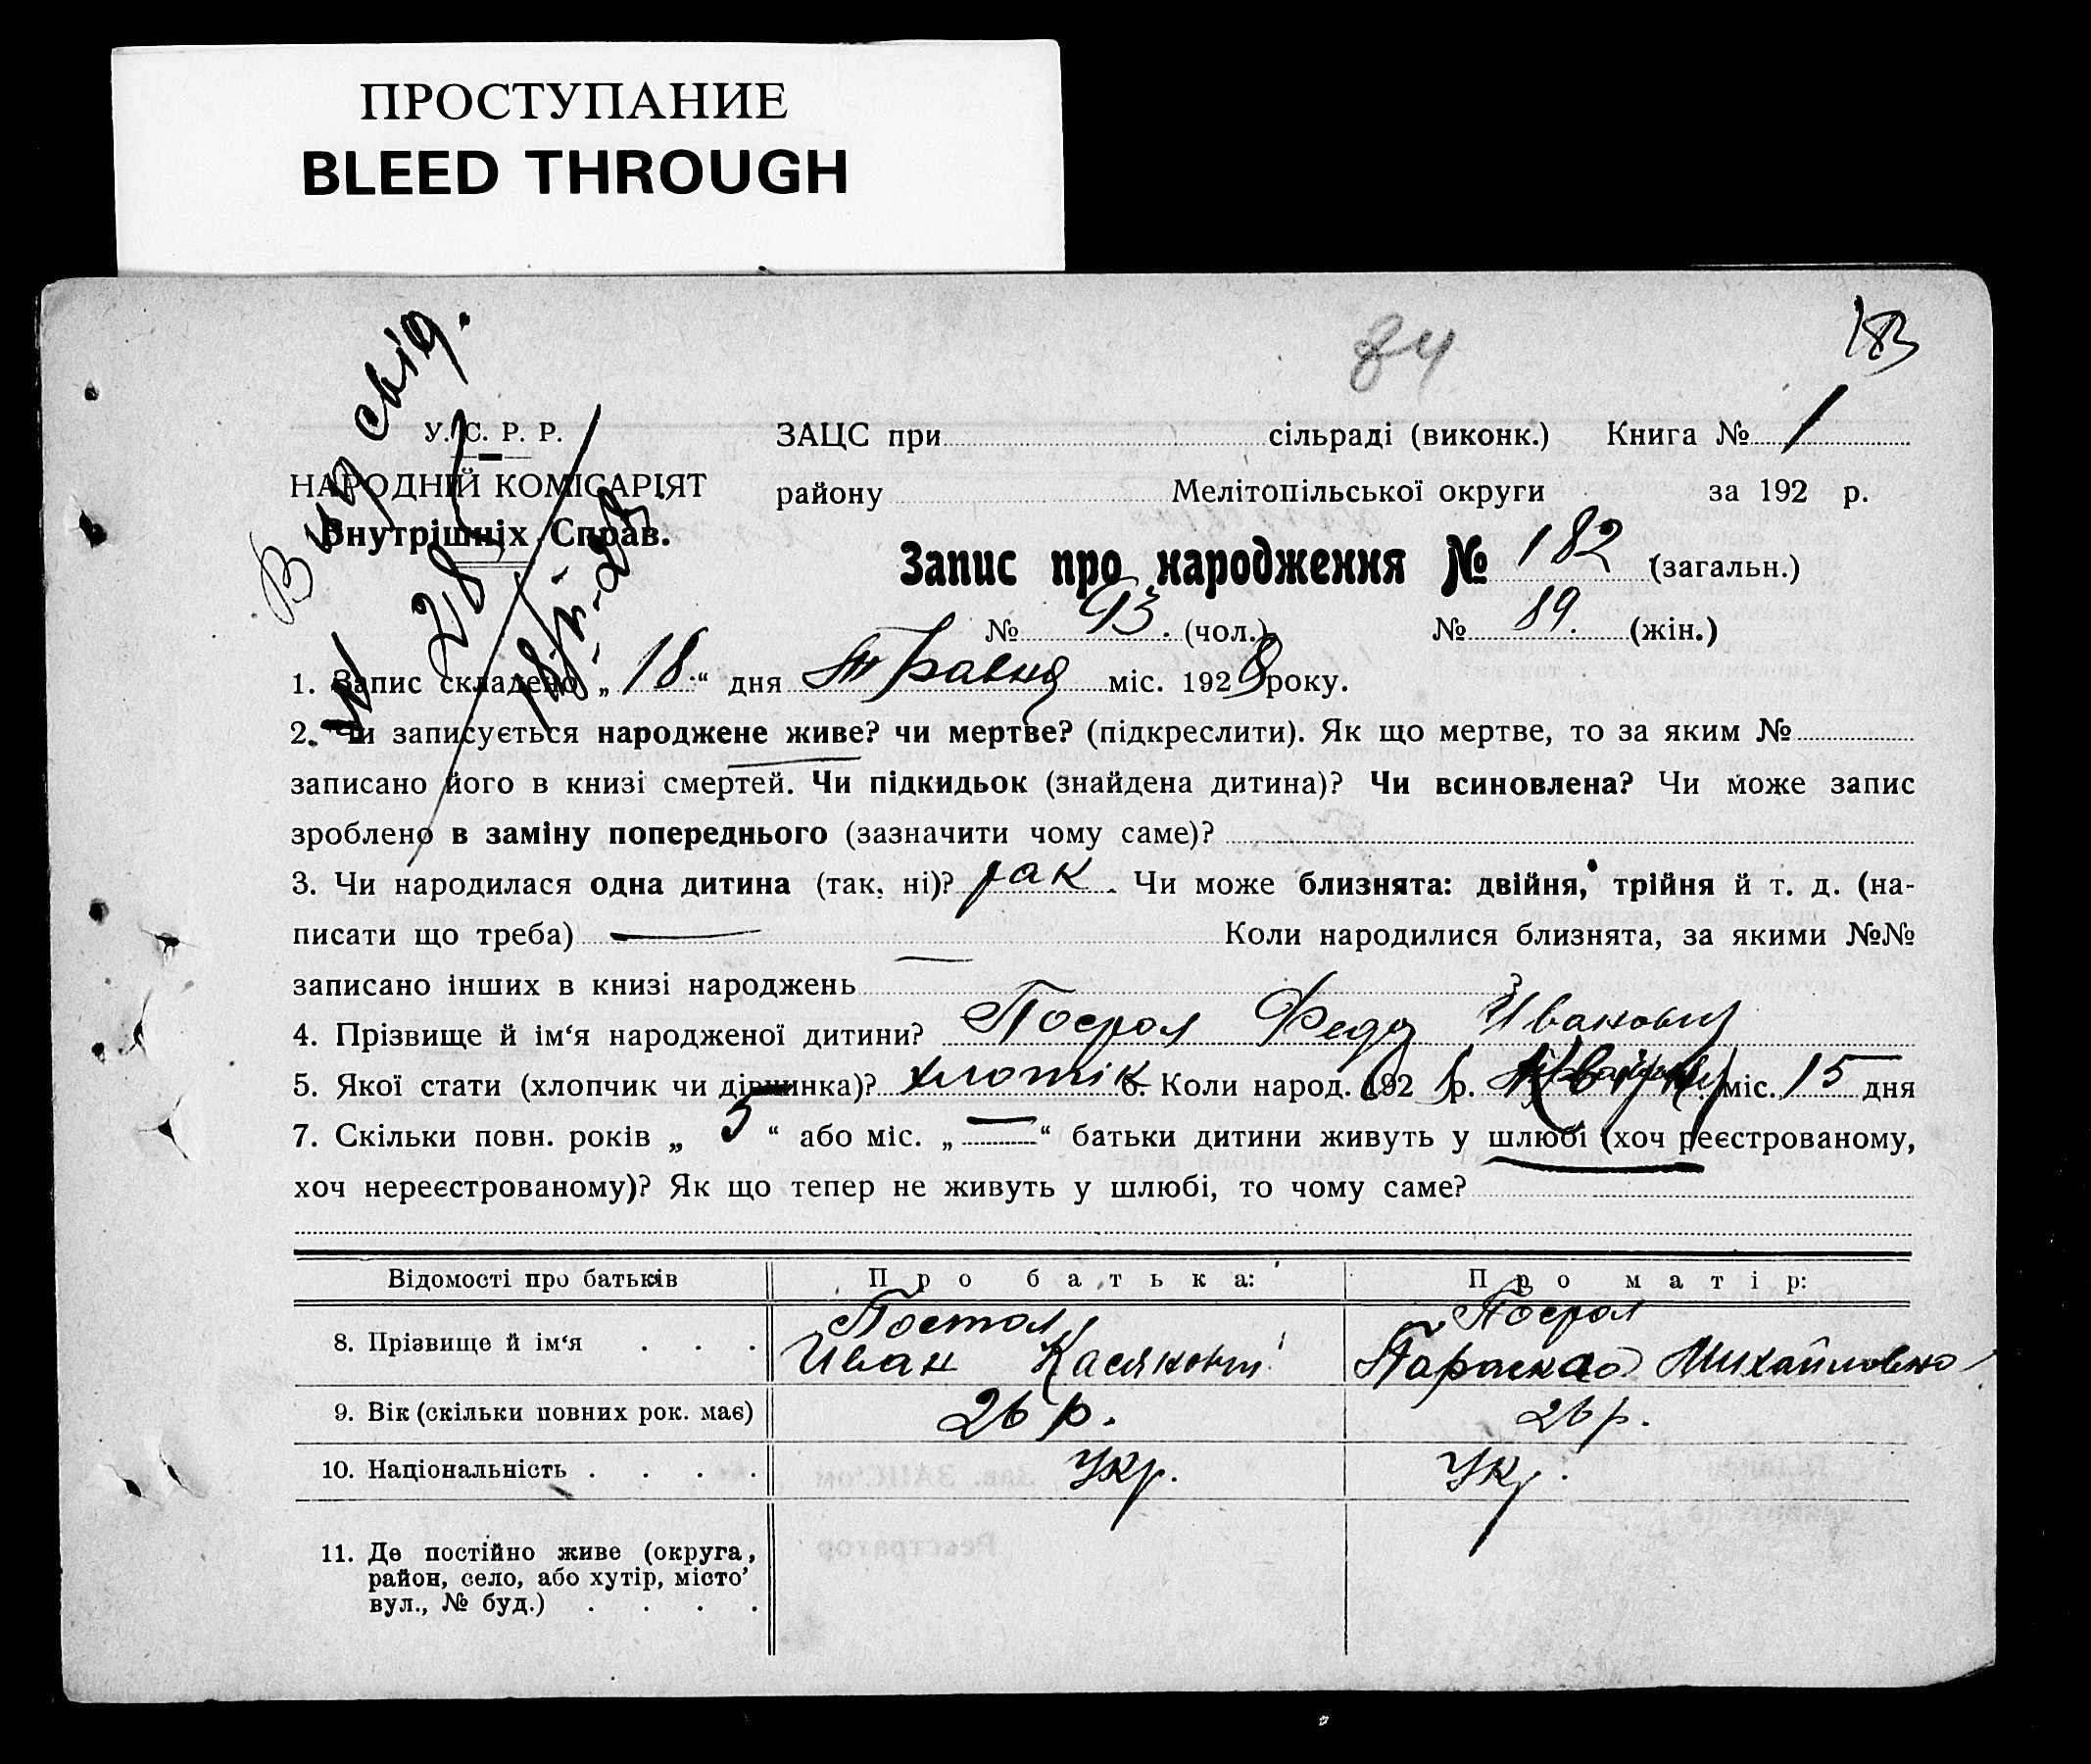 ПРОСТУПАНИЕ
BLEED THROUGH
84
183
Вид свід.
№ 28
18/V-28
У. С. Р. Р.
НАРОДНІЙ КОМІСАРІЯТ
Внутрішніх Справ.
ЗАЦС при сільраді (виконк.) Книга № 1
району Мелітопільської округи за 192 р.
Запис про народження № 182 (загальн.)
№ 93. (чол.) № 89. (жін.)
1. Запис складено „18“ дня Травня міс. 1928 року.
2. Чи записується народжене живе? чи мертве? (підкреслити). Як що мертве, то за яким №
записано його в книзі смертей. Чи підкидьок (знайдена дитина)? Чи всиновлена? Чи може запис
зроблено в заміну попереднього (зазначити чому саме)?
3. Чи народилася одна дитина (так, ні)? так. Чи може близнята: двійня, трійня й т. д. (на-
писати що треба) — Коли народилися близнята, за якими №№
записано інших в книзі народжень —
4. Прізвище й ім‘я народженої дитини? Постол Федір Іванович
5. Якої стати (хлопчик чи дівчинка)? хлопчік 6. Коли народ. 1928 р. міс. 15 дня
7. Скільки повн. років „ 5 “ або міс. „ — “ батьки дитини живуть у шлюбі (хоч реєстрованому,
хоч нереєстрованому)? Як що тепер не живуть у шлюбі, то чому саме?
Відомості про батьків Про батька: Про матір:
8. Прізвище й ім‘я . . . Постол Иван Касянович Постол Параска Михайловна
9. Вік (скільки повних рок. має) 26 р. 26 р.
10. Національність . . . . Укр. Укр.
11. Де постійно живе (округа,
район, село, або хутір, місто,
вул., № буд.) . . . .